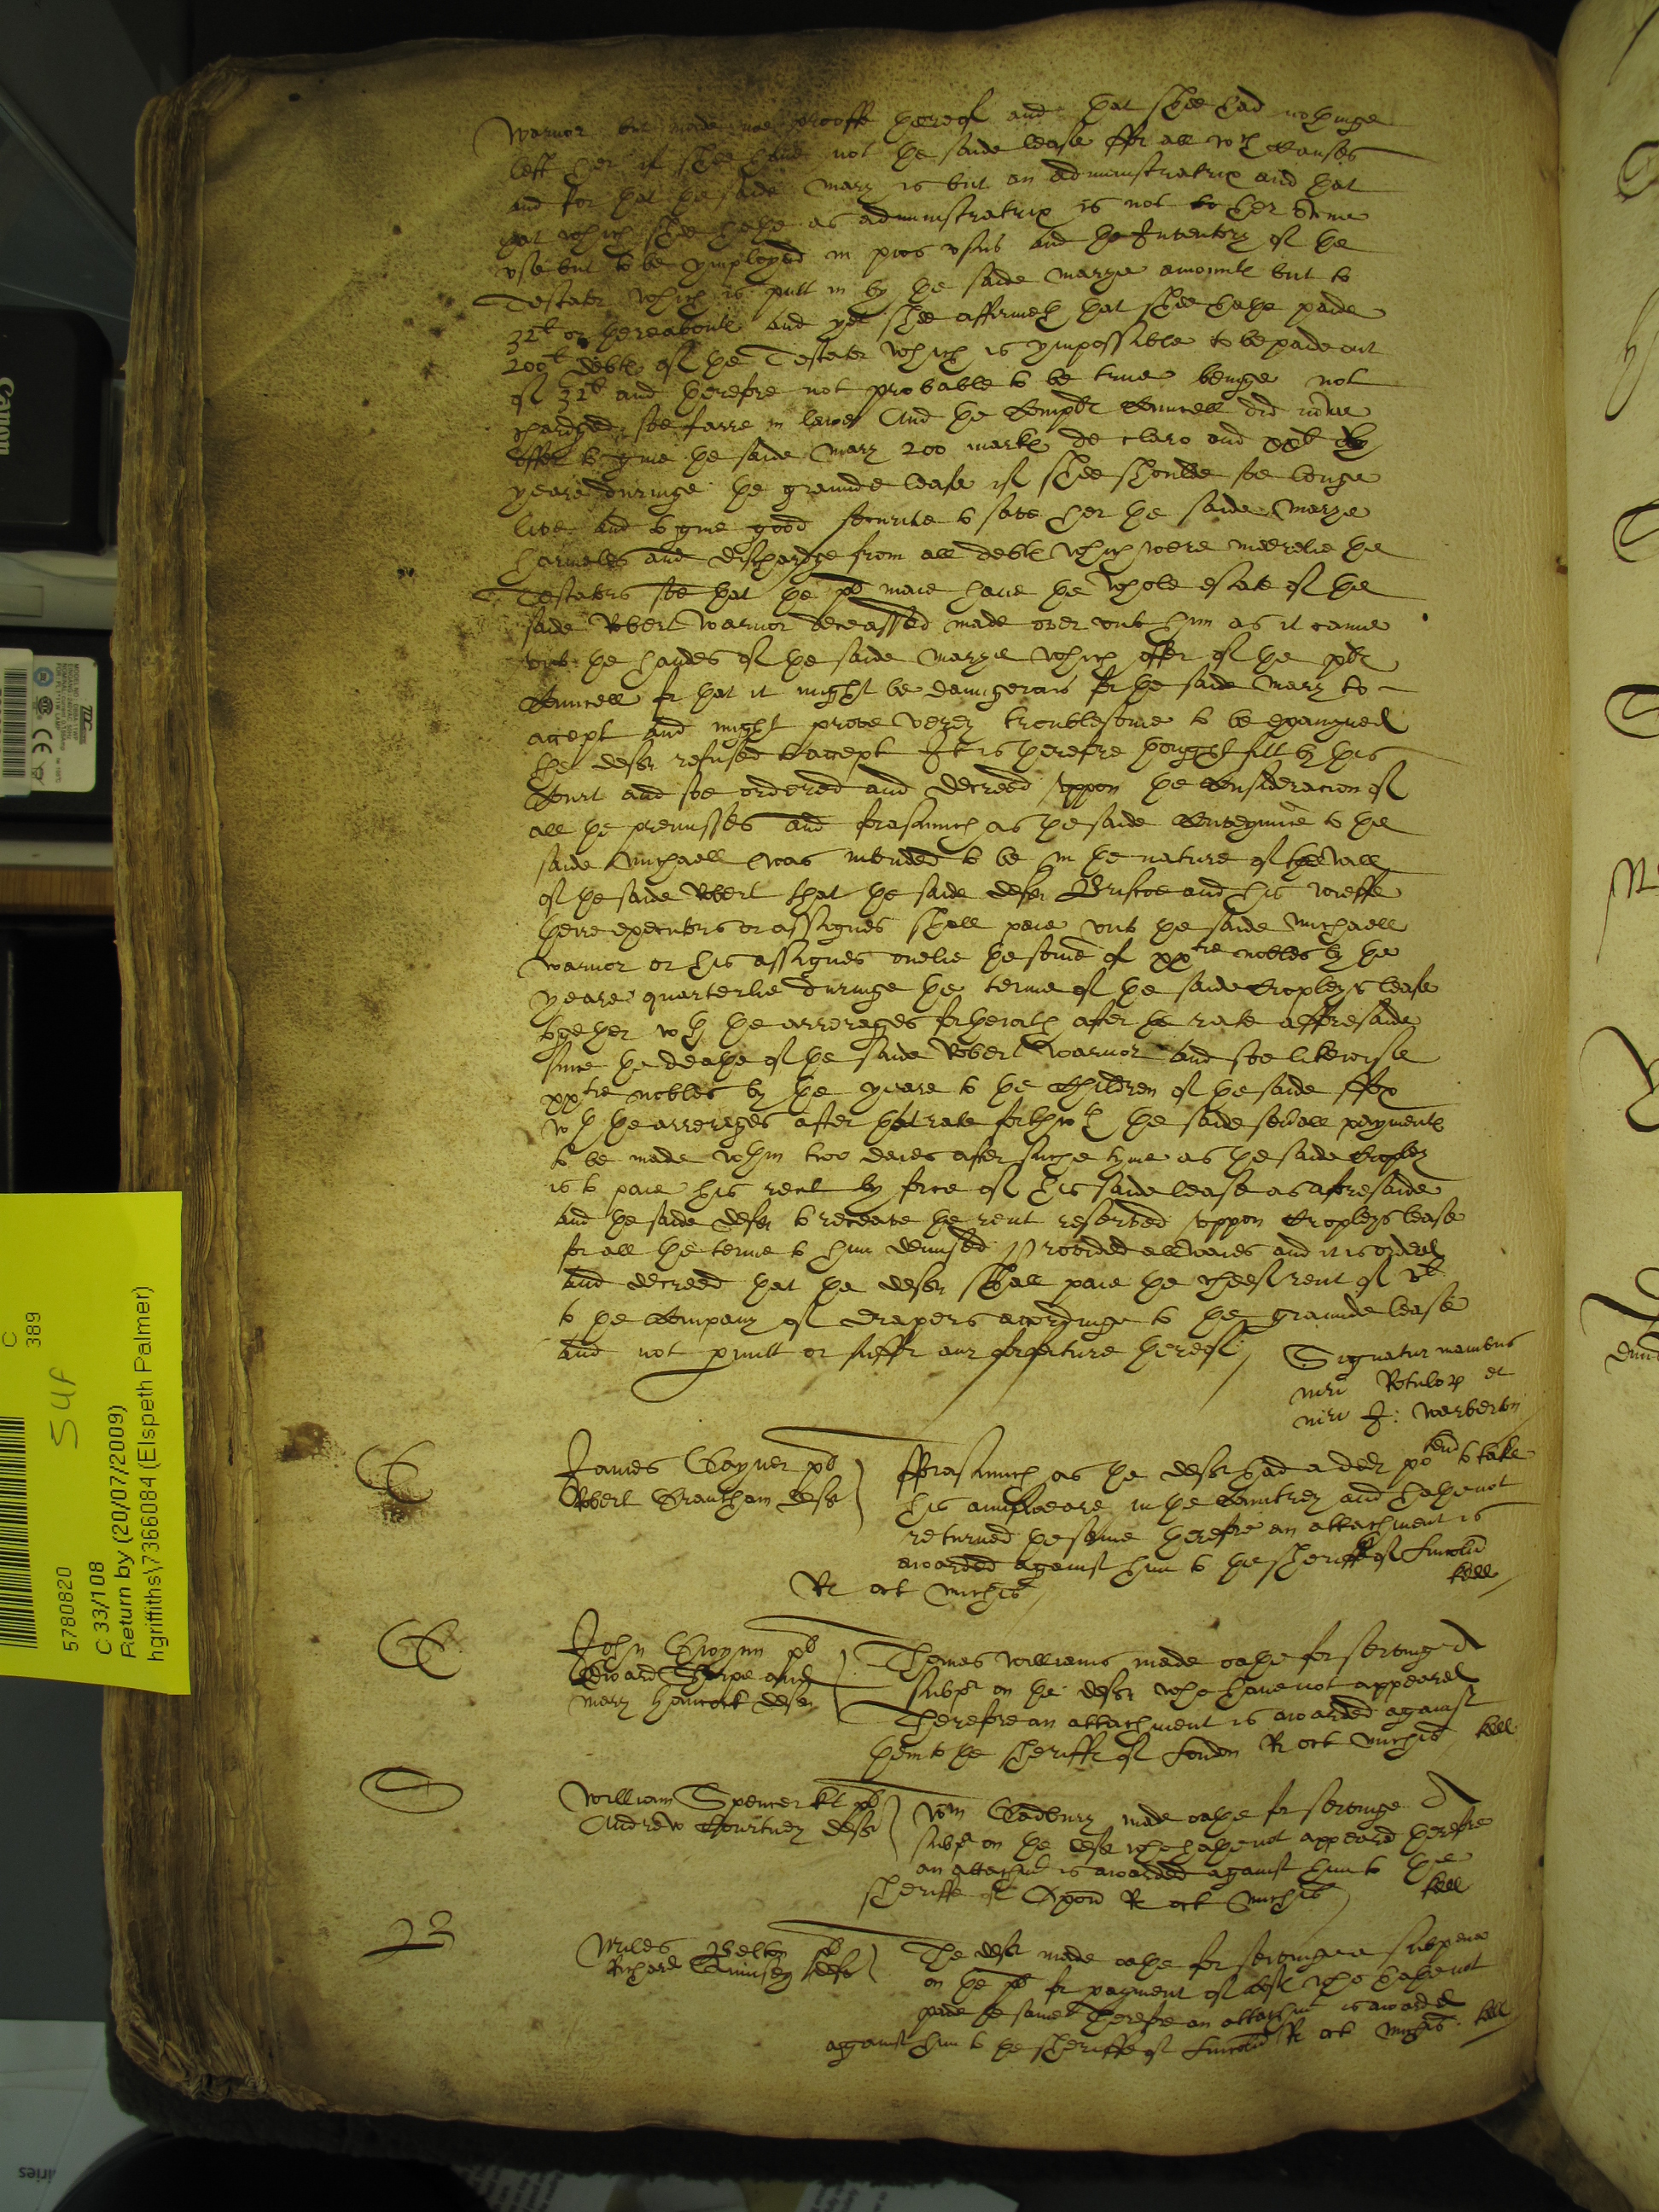 Warnor but made noe prooffe thereof and that shee had nothinge
left her if shee have not the saide lease ffor all wch Causes
and for that the saide Mary is but an administratrix and that
that which shee hathe as administratrix is not to her owne
use but to be ymployed in pios usus and the Inventory of the
Testator which is putt in by the saide Marye amountes but to
32l or thereaboutes and yet shee affirmeth that shee hathe paide
200l debtes of the Testator which is ympossible to be paide out
of 32l and therefore not probable to be true beinge not
chardged soe farre in lawe And the Complts Councell did
offer to give the saide Mary 200 markes de claro and xxl by
yeare duringe the grounde lease if shee shoulde soe longe
live and to give good securitie to save her the saide Marye
harmeles and dischardge from all debtes which were meerelie the
Testators soe that the pl maie have the whole estate of the
saide Robert Warnor deceassed made over unto him as it came
unto the handes of the saide Marye which offer of the pls
Councell for that it might be daungerous for the saide Mary to
accept and might prove verey troublesome to be examyned
the defts refused to accept It is therefore thought fitt by this
Court and soe ordered and decreed uppon the Consideracion of
all the premisses and forasmuch as the saide Conveyance to the
saide Michaell was intended to be in the nature of the will
of the saide Robert that the saide deft Briscoe and his wieffe
theire executors or assignes shall paie unto the saide Michaell
Warnor or his assignes onelie the some of xxtie nobles by the
yeare quarterlie duringe the terme of the saide Cropleys lease
together wth the arrerages forthwith after the rate afforesaide
since the deathe of the saide Robert Warnor and soe likewise
xxtie nobles by the yeare to the Children of the saide ffox
wth the arrerages after that rate forthwth the saide severall paymentes
to be made wthin two daies after suche tyme as the saide Cropley
is to paie his rent by force of his saide lease as aforesaide
and the saide defts to receave the rent reserved uppon Cropleys lease
for all the terme to him demised Provided allwaies and it is ordered
and decreed that the defts shall paie the cheef rent of vl
to the Company of Drapers accordinge to the grounde lease
and not pmitt or suffer any forfeiture thereof
Signatur manibus
mri Rotulor et
mri J: Warberton
James Gayner pl
Robert Grantham deft
fforasmuch as the deft had a ded potend to take
his aunsweare in the Countrey and hathe not
returned the same therefore an attachment is
awarded against him to the sheriffe of Lincoln
R oct Michis
John Gwynn pl
Edward Thorpe and
Mary Hancock defts
Thomas Williams made oathe for servinge a
subpe on the defts who have not appeared
Therefore an attachment is awarded against
them to the sheriffe of London R oct Michis
William Spencer kt pl
Andrew Courtney deft
Wm Gadbury made oathe for servinge a
subpe on the deft who hathe not appeard therefore
an attachmt is awarded against him to the
sheriffe of Oxon R oct Michis
Miles Belton pl
Richard Grimsey deft
The deft made oathe for servinge a subpena
on the pl for payment of costes who hathe not
paide the same Therefore an attachmt is awarded
against him to the sheriffe of Lincoln R oct Michis
Canon
C
389
5uf
5780820
C 33/108
Return by (20/07/2009)
hgriffiths\7366084 (Elspeth Palmer)